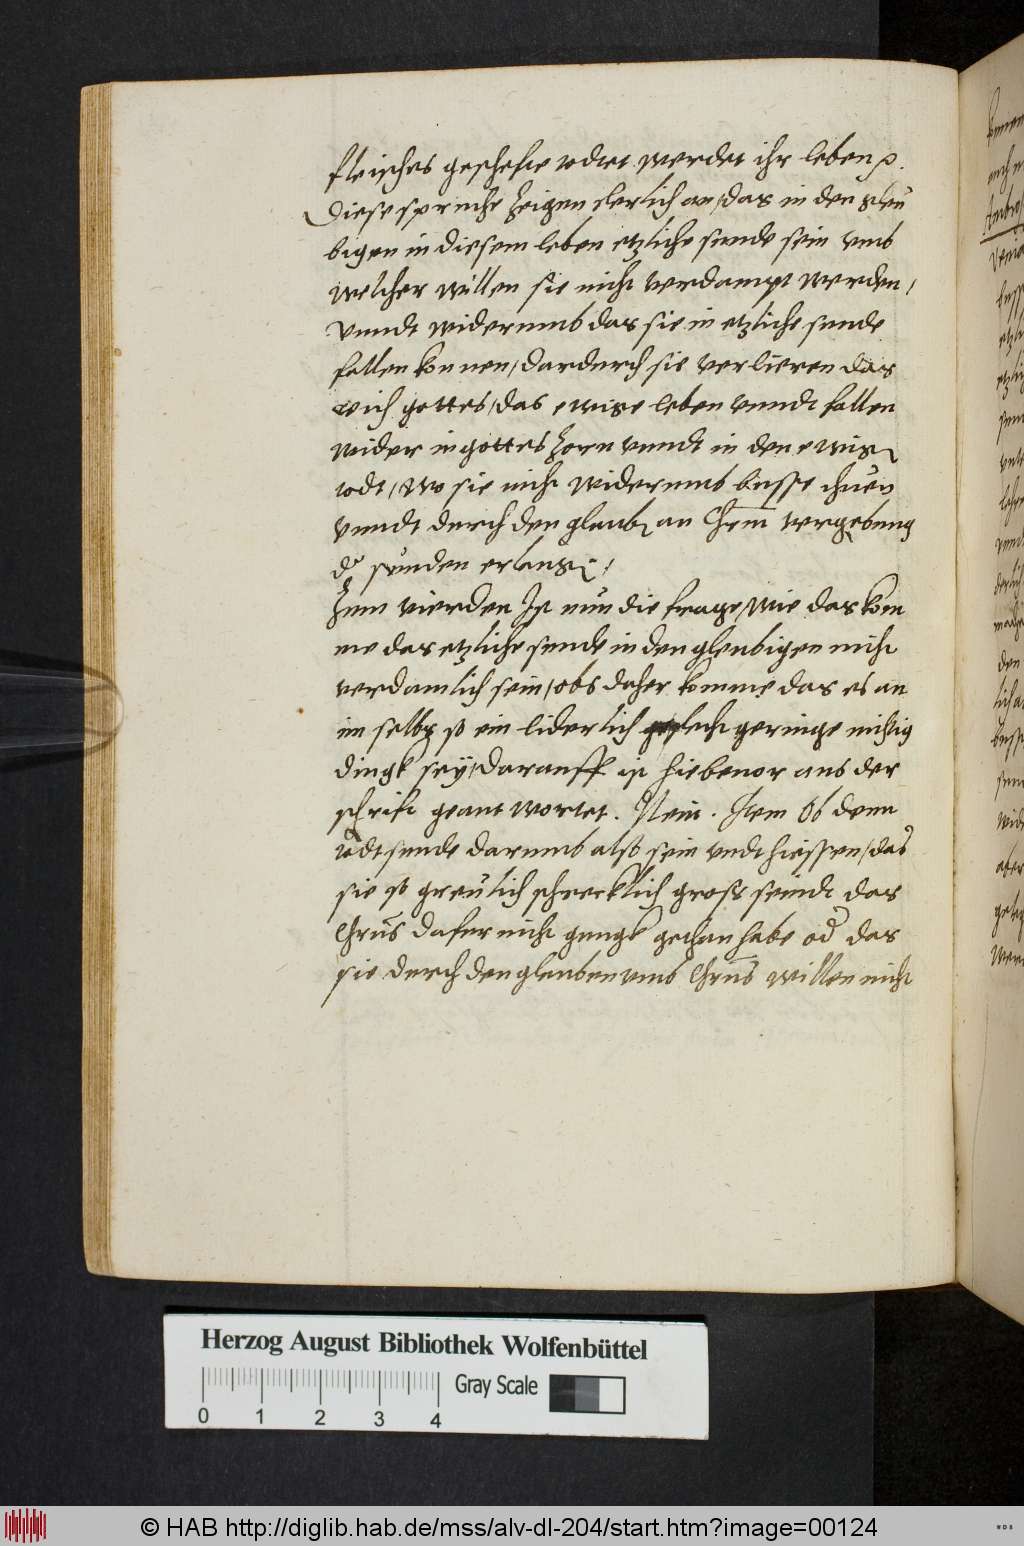 fleisches geschefte todtet werdet ihr leben
Diese spruche zeigen clerlich an / das in den gleu
bigen in diesem leben etzliche sunde sein umb
welcher willen sie nicht verdampt werden /
vnndt widerumb das sie in etzliche sunde
fallen konnen / dardurch sie verlieren das
reich gottes / das ewige leben vnndt fallen
wider in gottes zorn vnndt in den ewig
todt / wo sie nicht widerumb busse thuen
vnndt durch den glaub an Chrm vergebung
d sunden erlang /
Zum vierden Ist nun die frage / wie das kom
me das etzliche sunde in den gleubigen nicht
verdamlich sein / obs daher komme das es an
im selbs so ein liderlich geringe nichtig
dingk sey / darauff ist hiebevor aus der
schrift geantwortet. Nein. Item Ob denn
todtsunde darumb also sein undt heissen / das
sie so greulich schrecklich gross seindt das
Chrus dafur nicht gnugk gethan habe od das
sie durch den glauben umb Chrus willen nicht
Herzog August Bibliothek Wolfenbüttel
Gray Scale
0 1 2 3 4
© HAB http://diglib.hab.de/mss/alv-dl-204/start.htm?image=00124